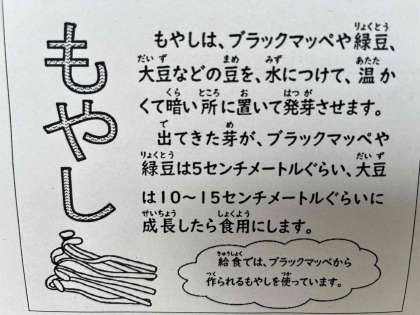 もやし
もやしは、ブラックマッペや緑豆、
大豆などの豆を、水につけて、温か
くて暗い所に置いて発芽させます。
出てきた芽が、ブラックマッペや
緑豆は5センチメートルぐらい、大豆
は10〜15センチメートルぐらいに
成長したら食用にします。
給食では、ブラックマッペから
作られるもやしを使っています。